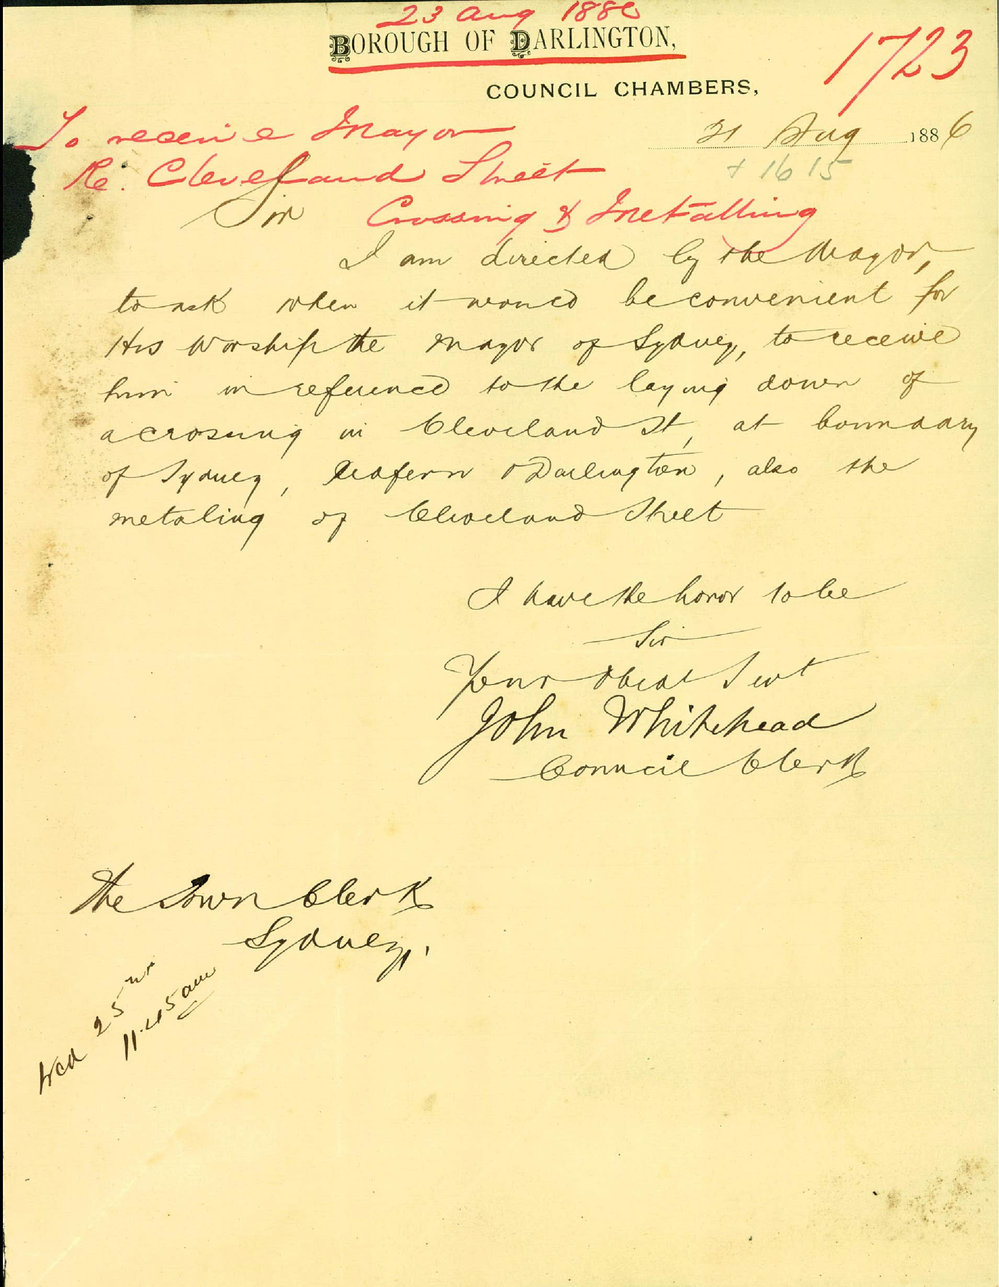 23 Aug 1886
BOROUGH OF DARLINGTON,
1723
COUNCIL CHAMBERS,
To receive Mayor
21 Aug 1886
Re. Cleveland Street
+ 1615
Sir
Crossing & Metalling
I am directed by the Mayor,
to ask when it would be convenient for
His Worship the Mayor of Sydney, to receive
him in reference to the laying down of
a crossing in Cleveland St, at boundary
of Sydney, Redfern & Darlington, also the
metaling of Cleveland Street
I have the honor to be
Sir
Your Obedt Servt
John Whitehead
Council Clerk
The Town Clerk
Sydney,
Wed 25th
11.45 am